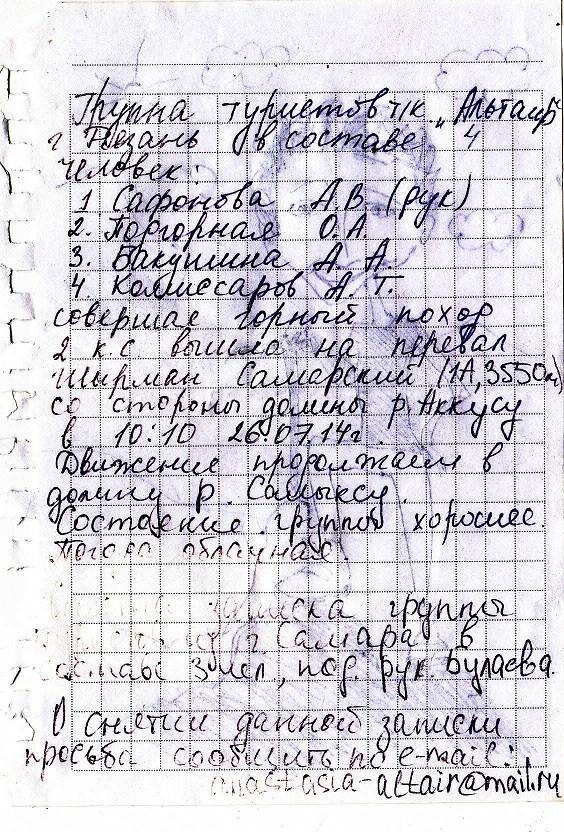 Группа туристов т/к „Альтаир"
г Рязань в составе 4
человек:
1 Сафонова А.В. (рук)
2. Подгорная О.А.
3. Бакушина А. А
4. Комиссаров А. Г.
совершая горный поход
2 к.с вышла на перевал
Ширман Самарский (1А, 3550м)
со стороны долины р. Аккусу
в 10:10 26.07.14г.
Движение продолжаем в
долину р.
Состояние группы хорошее.
Погода облачная.
записка группы
г. Самара в
составе 3 чел, под. рук. Булаева.
О снятии данной записки
просьба сообщить по e-mail:
anastasia-altair@mail.ru